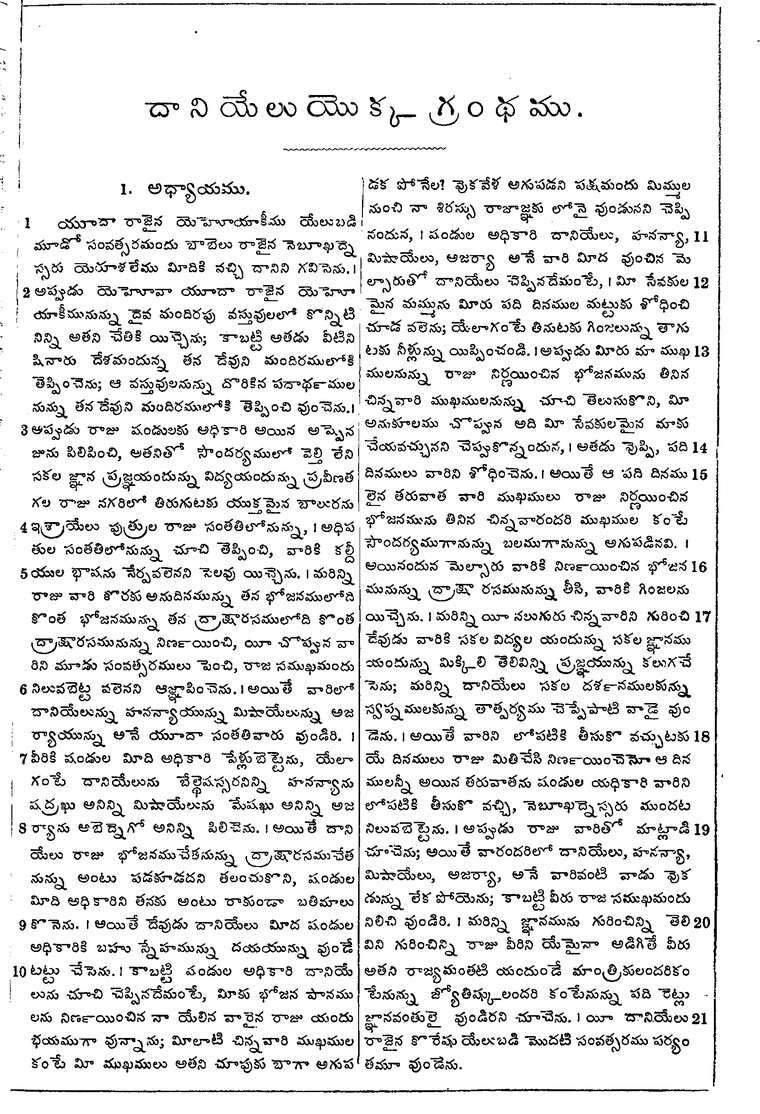 దానియేలుయొక్క గ్రంథము.
1. అధ్యాయము.
1 యూదా రాజైన యెహూయాకీము యేలుబడి
మూడో సంవత్సరమందు బాబేలు రాజైన నెబూఖద్నె
స్సరు యెరూశలేము మీదికి వచ్చి దానిని గవిసెను.।
2 అప్పుడు యెహోవా యూదా రాజైన యెహూ
యాకీమునున్ను దైవ మందిరపు వస్తువులలో కొన్నిటి
నిన్ని అతని చేతికి యిచ్చెను; కాబట్టి అతడు వీటిని
షినారు దేశమందున్న తన దేవుని మందిరములోకి
తెప్పించెను; ఆ వస్తువులనున్ను దొరికిన పదార్థముల
నున్ను తన దేవుని మందిరములోకి తెప్పించి వుంచెను.।
3 అప్పుడు రాజు షండులకు అధికారి అయిన అష్పెన
జును పిలిపించి, అతనితో సౌందర్యములో వెల్తి లేని
సకల జ్ఞాన ప్రజ్ఞయందున్ను విద్యయందున్ను ప్రవీణత
గల రాజు నగరిలో తిరుగుటకు యుక్తమైన బాలురను
4 ఇశ్రాయేలు పుత్రుల రాజు సంతతిలోనున్ను, । అధిప
తుల సంతతిలోనున్ను చూచి తెప్పించి, వారికి కల్దీ
5 యుల భాషను నేర్పవలెనని సెలవు యిచ్చెను. । మరిన్ని
రాజు వారి కొరకు అనుదినమున్ను తన భోజనములోది
కొంత భోజనమున్ను తన ద్రాక్షారసములోది కొంత
ద్రాక్షారసమునున్ను నిర్ణయించి, యీ చొప్పున వా
రిని మూడు సంవత్సరములు పెంచి, రాజ సముఖమందు
6 నిలువబెట్ట వలెనని ఆజ్ఞాపించెను. । అయితే వారిలో
దానియేలున్ను హనన్యాయున్ను మిషాయేలున్ను అజ
ర్యాయున్ను అనే యూదా సంతతివారు వుండిరి. ।
7 వీరికి షండుల మీది అధికారి పేళ్లుబెట్టెను, యేలా
గంటే దానియేలును బేల్తెషస్సరనిన్ని హనన్యాను
షద్రఖు అనిన్ని మిషాయేలును మేషఖు అనిన్ని అజ
8 ర్యాను అబెద్నెగో అనిన్ని పిలిచెను. । అయితే దాని
యేలు రాజు భోజనముచేకనున్ను ద్రాక్షారసముచేత
నున్ను అంటు పడకూడదని తలంచుకొని, షండుల
మీది అధికారిని తనకు అంటు రాకుండా బతిమాలు
9 కొనెను. । అయితే దేవుడు దానియేలు మీద షండుల
అధికారికి బహు స్నేహమున్ను దయయున్ను వుండే
10 టట్టు చేసెను. । కాబట్టి షండుల అధికారి దానియే
లును చూచి చెప్పినదేమంటే, మీకు భోజన పానము
లను నిర్ణయించిన నా యేలిన వారైన రాజు యందు
భయముగా వున్నాను; మీలాటి చిన్నవారి ముఖముల
కంటే మీ ముఖములు అతని చూపుకు బాగా అగుప
డక పోనేల? వుకవేళ అగుపడని పక్షమందు మిమ్ముల
నుంచి నా శిరస్సు రాజాజ్ఞకు లోనై వుండునని చెప్పి
నందున, । షండుల అధికారి దానియేలు, హనన్యా, 11
మిషాయేలు, అజర్యా అనే వారి మీద వుంచిన మె
ల్సారుతో దానియేలు చెప్పినదేమంటే, । మీ సేవకుల 12
మైన మమ్మును మీరు పది దినముల మట్టుకు శోధించి
చూడ వలెను; యేలాగంటే తినుటకు గింజలున్ను తాగు
టకు నీళ్లున్ను యిప్పించండి. । అప్పుడు మీరు మా ముఖ 13
ములనున్ను రాజు నిర్ణయించిన భోజనమును తినిన
చిన్నవారి ముఖములనున్ను చూచి తెలుసుకొని, మీ
అనుకూలము చొప్పున అది మీ సేవకులమైన మాకు
చేయవచ్చునని చెప్పుకొన్నందున, । అతడు వొప్పి, పది 14
దినములు వారిని శోధించెను. । అయితే ఆ పది దినము 15
లైన తరువాత వారి ముఖములు రాజు నిర్ణయించిన
భోజనమును తినిన చిన్నవారందరి ముఖముల కంటే
సౌందర్యముగానున్ను బలముగానున్ను అగుపడినవి. ।
అయినందున మెల్సారు వారికి నిర్ణయించిన భోజన 16
మునున్ను ద్రాక్షా రసమునున్ను తీసి, వారికి గింజలను
యిచ్చెను. । మరిన్ని యీ నలుగురు చిన్నవారిని గురించి 17
దేవుడు వారికి సకల విద్యల యందున్ను సకల జ్ఞానము
యందున్ను మిక్కిలి తెలివిన్ని ప్రజ్ఞయున్ను కలుగచే
సెను; మరిన్ని దానియేలు సకల దర్శనములకున్ను
స్వప్నములకున్ను తాత్పర్యము చెప్పేపాటి వాడై వుం
డెను. । అయితే వారిని లోపటికి తీసుకొ వచ్చుటకు 18
యే దినములు రాజు మితిచేసి నిర్ణయించెనో ఆ దిన
ములన్నీ అయిన తరువాతను షండుల యధికారి వారిని
లోపటికి తీసుకొ వచ్చి, నెబూఖద్నెస్సరు ముందట
నిలువబెట్టెను. । అప్పుడు రాజు వారితో మాట్లాడి 19
చూచెను; అయితే వారందరిలో దానియేలు, హనన్యా,
మిషాయేలు, అజర్యా, అనే వారివంటి వాడు వుక
డున్ను లేక పోయెను; కాబట్టి వీరు రాజ సముఖమందు
నిలిచి వుండిరి. । మరిన్ని జ్ఞానమును గురించిన్ని తెలి 20
విని గురించిన్ని రాజు వీరిని యేమైనా అడిగితే వీరు
అతని రాజ్యమంతటి యందుండే మాంత్రికులందరికం
టేనున్ను జ్యోతిష్కులందరి కంటేనున్ను పది రెట్లు
జ్ఞానవంతులై వుండిరని చూచెను. । యీ దానియేలు 21
రాజైన కొరేషు యేలుబడి మొదటి సంవత్సరము పర్యం
తమూ వుండెను.